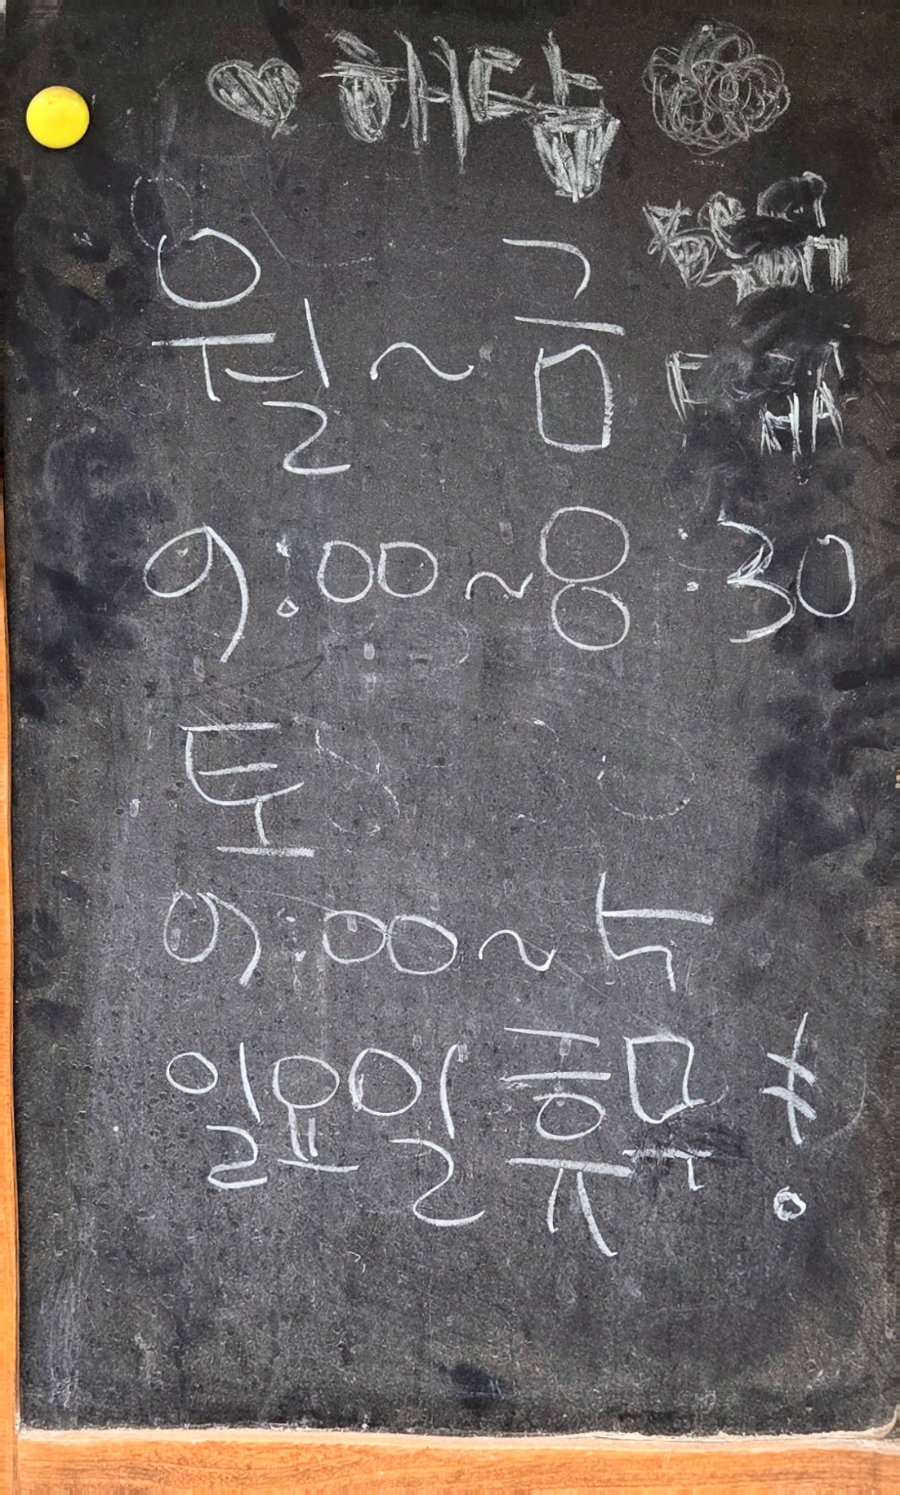 해는
월~금
9:00~8:30
토
9:00~5
일요일 휴무!